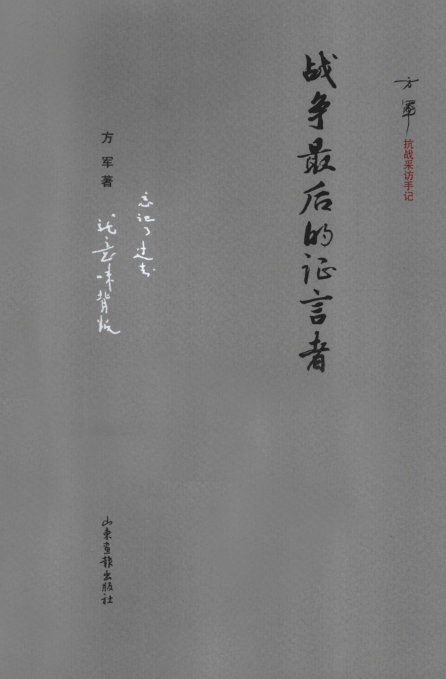 方军
抗战采访手记
战争最后的证言者
忘记了过去
就意味背叛
方军著
山东画报出版社